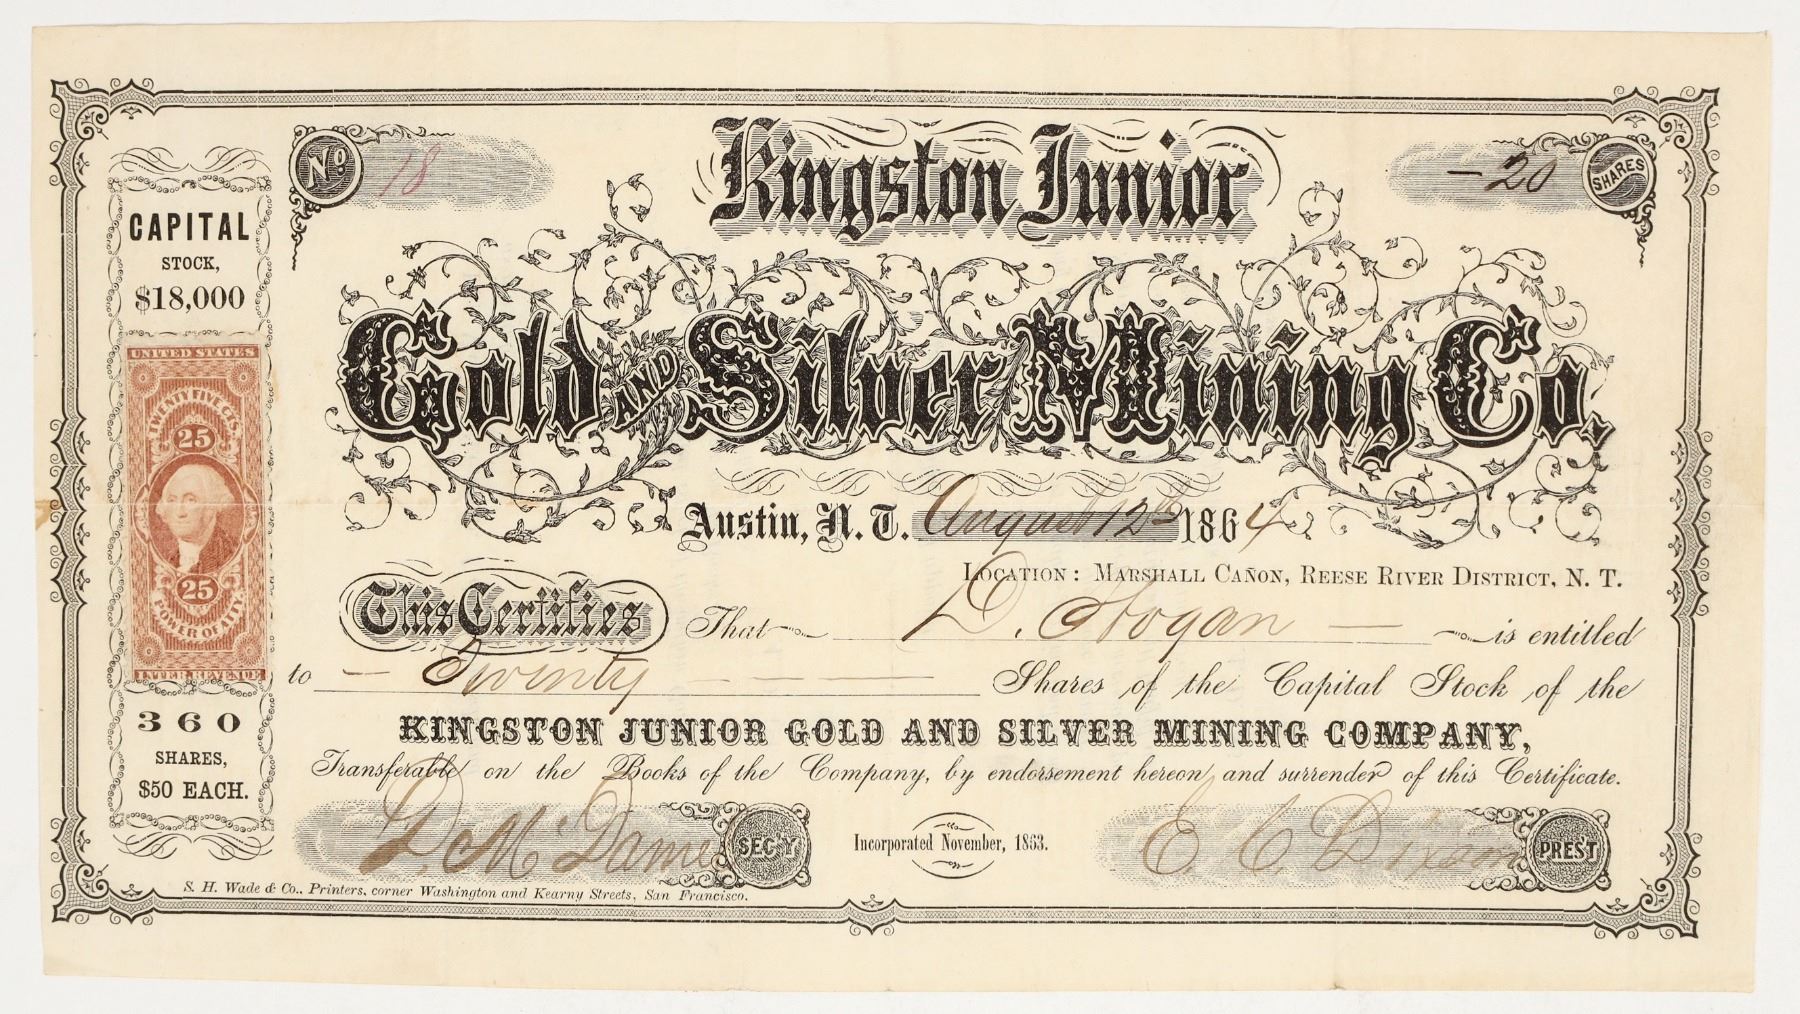 No 18
Kingston Junior
-20 SHARES
Gold AND Silver Mining Co.
CAPITAL
STOCK,
$18,000
UNITED STATES
TWENTY FIVE CTS.
25
25
POWER OF ATTY.
INTER. REVENUE
360
SHARES,
$50 EACH.
Austin, N. T. August 12th 1864
LOCATION: MARSHALL CAÑON, REESE RIVER DISTRICT, N. T.
This Certifies That D. Hogan — is entitled
to — Twenty — — — Shares of the Capital Stock of the
KINGSTON JUNIOR GOLD AND SILVER MINING COMPANY,
Transferable on the Books of the Company, by endorsement hereon and surrender of this Certificate.
D. McDame SEC'Y
Incorporated November, 1863.
E. C. Dixson PREST
S. H. Wade & Co., Printers, corner Washington and Kearny Streets, San Francisco.